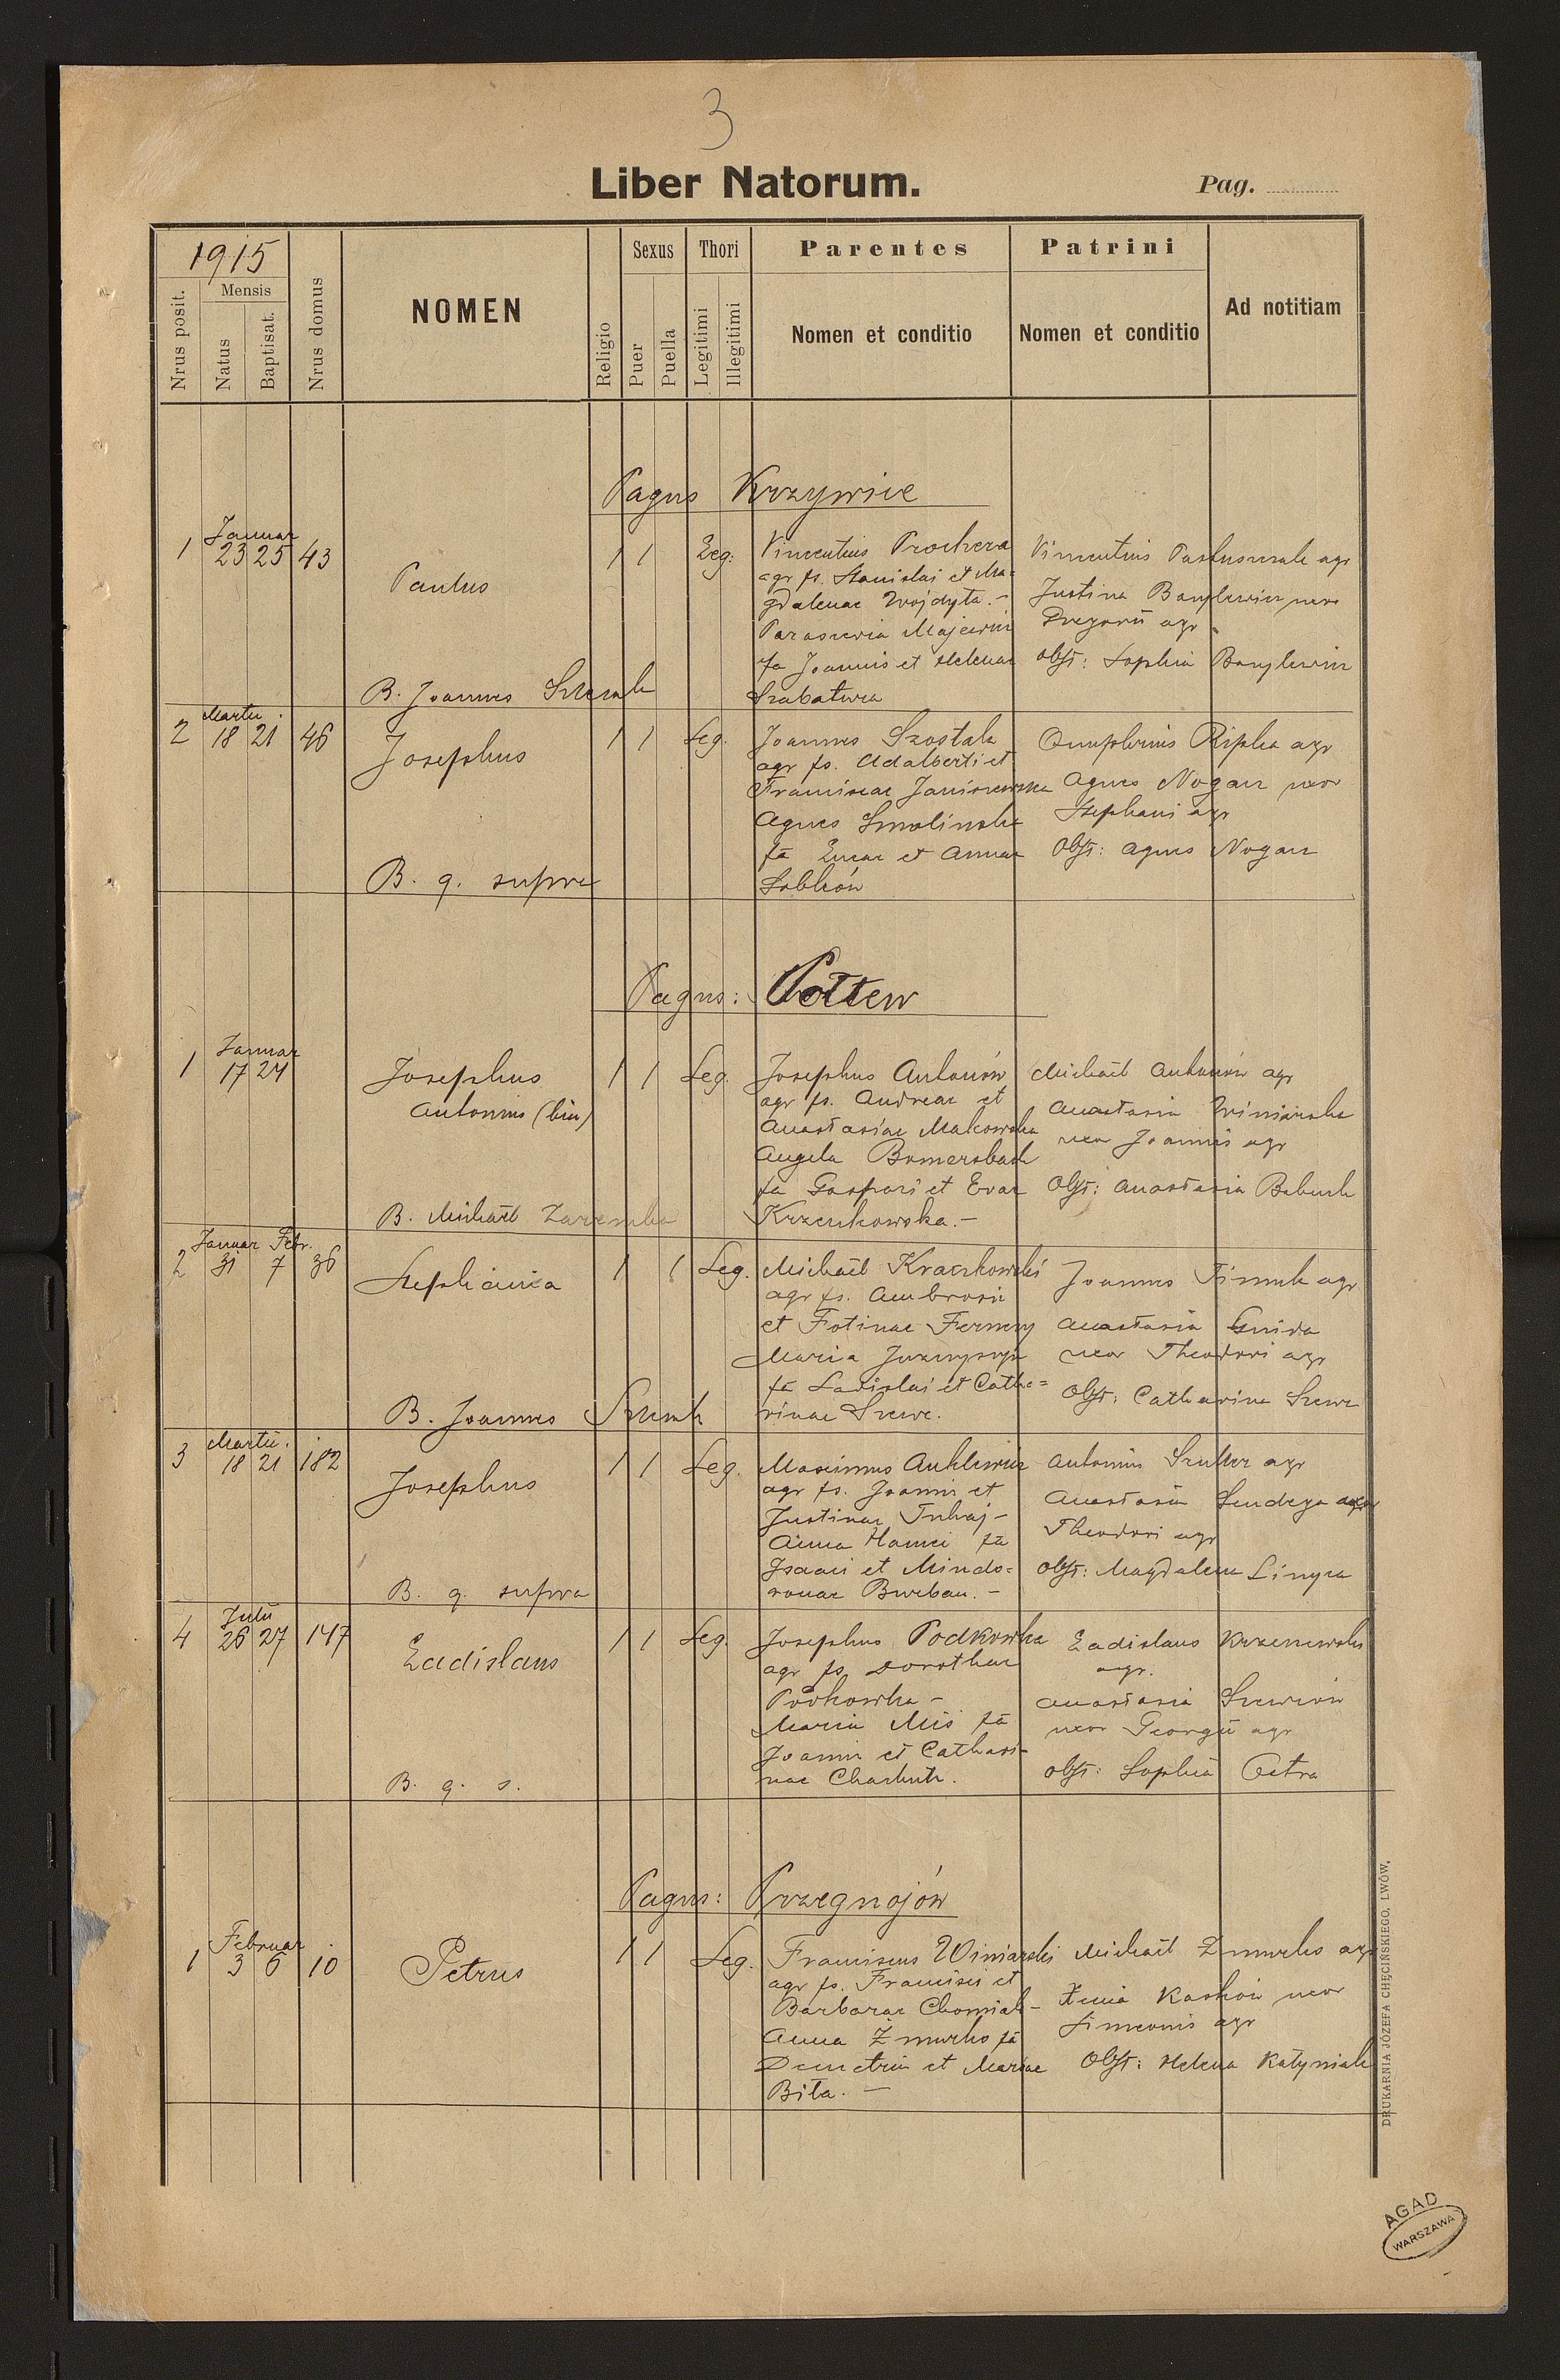 3
Liber Natorum.
Pag.
1915
Mensis
Nrus posit.
Natus
Baptisat.
Nrus domus
NOMEN
Religio
Sexus
Puer
Puella
Thori
Legitimi
Illegitimi
Parentes
Nomen et conditio
Patrini
Nomen et conditio
Ad notitiam
Pagus Krzywice
Januar
1 23 25 43
Paulus
1 1 Leg:
Vincentius Prochera
agr fs. Stanislai et Ma=
gdalenae Wojdyła.-
Parascevia Majewicz
fa Joannis et Helenae
Szabatura
Vincentius agr
Justina uxor
Gregorii agr
Obst: Sophia
B. Joannes
Martii
2 18 21 46
Josephus
1 1 Leg.
Joannes Szostak
agr fs. Adalberti et
Franciscae
Agnes Smolinska
fa Lucae et Annae
Onuphrius Ripka agr
Agnes Nogacz uxor
Stephani agr
Obst: Agnes Nogacz
B. q. supra
Pagus: Połtew
Januar
1 17 24
Josephus
Antonius (bin)
1 1 Leg.
Josephus Antonów
agr fs. Andreae et
Anastasiae Makowska
Angela Bomersbach
fa Gaspari et Evae
Krzeczkowska.-
Michaël Antonów agr
Anastasia Winiarska
uxor Joannis agr
Obst: Anastasia Babiuk
B. Michaël Zaremba
Januar Febr.
2 31 7 36
Stephania
1 1 Leg.
Michaël Kraczkowski
agr fs. Ambrosii
et Fotinae
Maria
fa Ladislai et Catha=
rinae Szewc.
Joannes agr
Anastasia
uxor Theodori agr
Obst: Catharina Szewc
B. Joannes
Martii.
3 18 21 182
Josephus
1 1 Leg.
Maximus
agr fs. Joannis et
Justinae Tuhaj-
Anna Hamci fa
Isaaci et Mindo=
ronae Burban.-
Antonius agr
Anastasia uxor
Theodori agr
Obst: Magdalena
B. q. supra
Julii
4 26 27 147
Ladislaus
1 1 Leg.
Josephus Podkowka
agr fs Dorotheae
Podkowka-
Maria Mis fa
Joannis et Cathari-
nae
Ladislaus
agr.
Anastasia
uxor Georgii agr
Obst: Sophia
B. q. s.
Pagus: Przegnojów
Februar
1 3 6 10
Petrus
1 1 Leg.
Franciscus Winiarski
agr fs. Francisci et
Barbarae Chomiak-
Anna Żmurko fa
Demetrii et Mariae
Biła.-
Michaël Żmurko agr
Xenia Kaśków uxor
Simeonis agr
Obst: Helena Katyniak
DRUKARNIA JÓZEFA CHĘCIŃSKIEGO, LWÓW.
AGAD
WARSZAWA